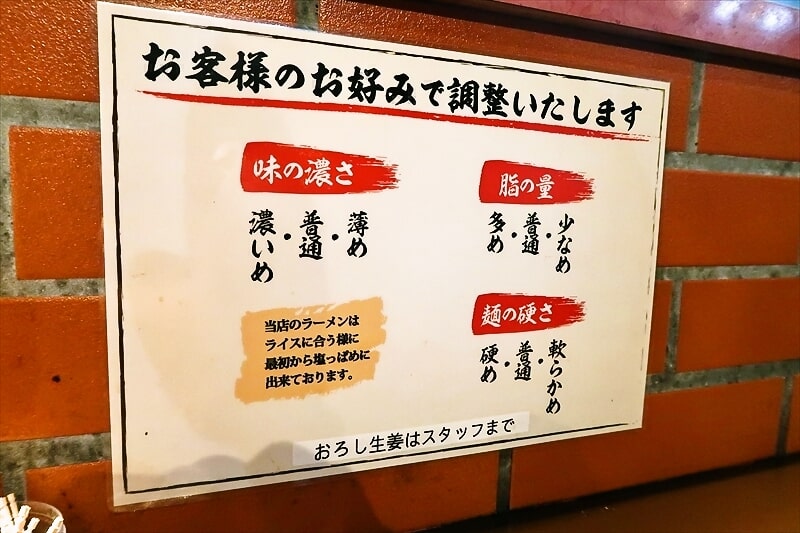 お客様のお好みで調整いたします
味の濃さ
薄め・普通・濃いめ
脂の量
少なめ・普通・多め
当店のラーメンは
ライスに合う様に
最初から塩っぱめに
出来ております。
麺の硬さ
軟らかめ・普通・硬め
おろし生姜はスタッフまで